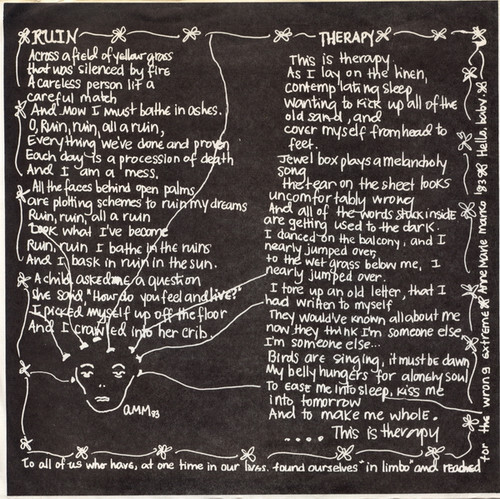 RUIN
Across a field of yellow grass
that was silenced by fire
A careless person lit a
careful match
And now I must bathe in ashes.
O, Ruin, ruin, all a ruin,
Everything we've done and proven
Each day is a procession of death
And I am a mess.
All the faces behind open palms
are plotting schemes to ruin my dreams
Ruin, ruin, all a ruin
Look what I've become
Ruin, ruin I bathe in the ruins
And I bask in ruin in the sun.
A child asked me a question
She said, "How do you feel and live?"
I picked myself up off the floor
And I crawled into her crib.
AMM 93
THERAPY
This is therapy
As I lay on the linen,
contemplating sleep
wanting to kick up all of the
old sand, and
cover myself from head to
feet.
Jewel box plays a melancholy
song
the tear on the sheet looks
uncomfortably wrong
And all of the words stuck inside
are getting used to the dark.
I danced on the balcony, and I
nearly jumped over
to the wet grass below me, I
nearly jumped over.
I tore up an old letter, that I
had written to myself
They would've known all about me
now they think I'm someone else,
I'm someone else...
Birds are singing, it must be dawn
My belly hungers for a lonely soul
To ease me into sleep, kiss me
into tomorrow
And to make me whole.
.... This is therapy
To all of us who have, at one time in our lives, found ourselves "in limbo" and reached
for the wrong extreme Anne Marie Manko '93 Hello, baby.